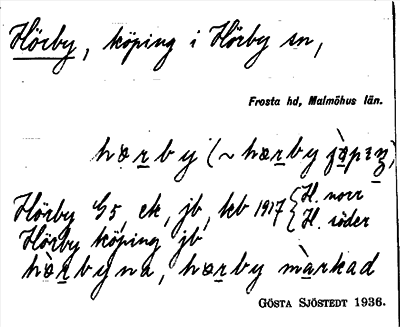 Hörby, köping i Hörby sn,
Frosta hd, Malmöhus län.
hœrby (~ hœrby
Hörby G5, ek, jb, kb 1917 { H. norr
H. söder
Hörby köping jb
hœrbyna, hœrby màrkad
GÖSTA SJÖSTEDT 1936.